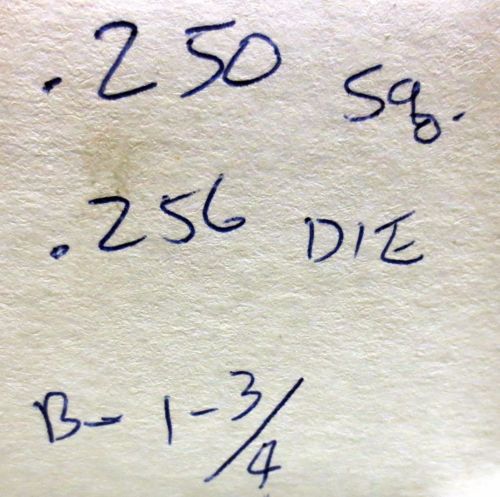 .250 sq.
.256 DIE
B- 1-3/4